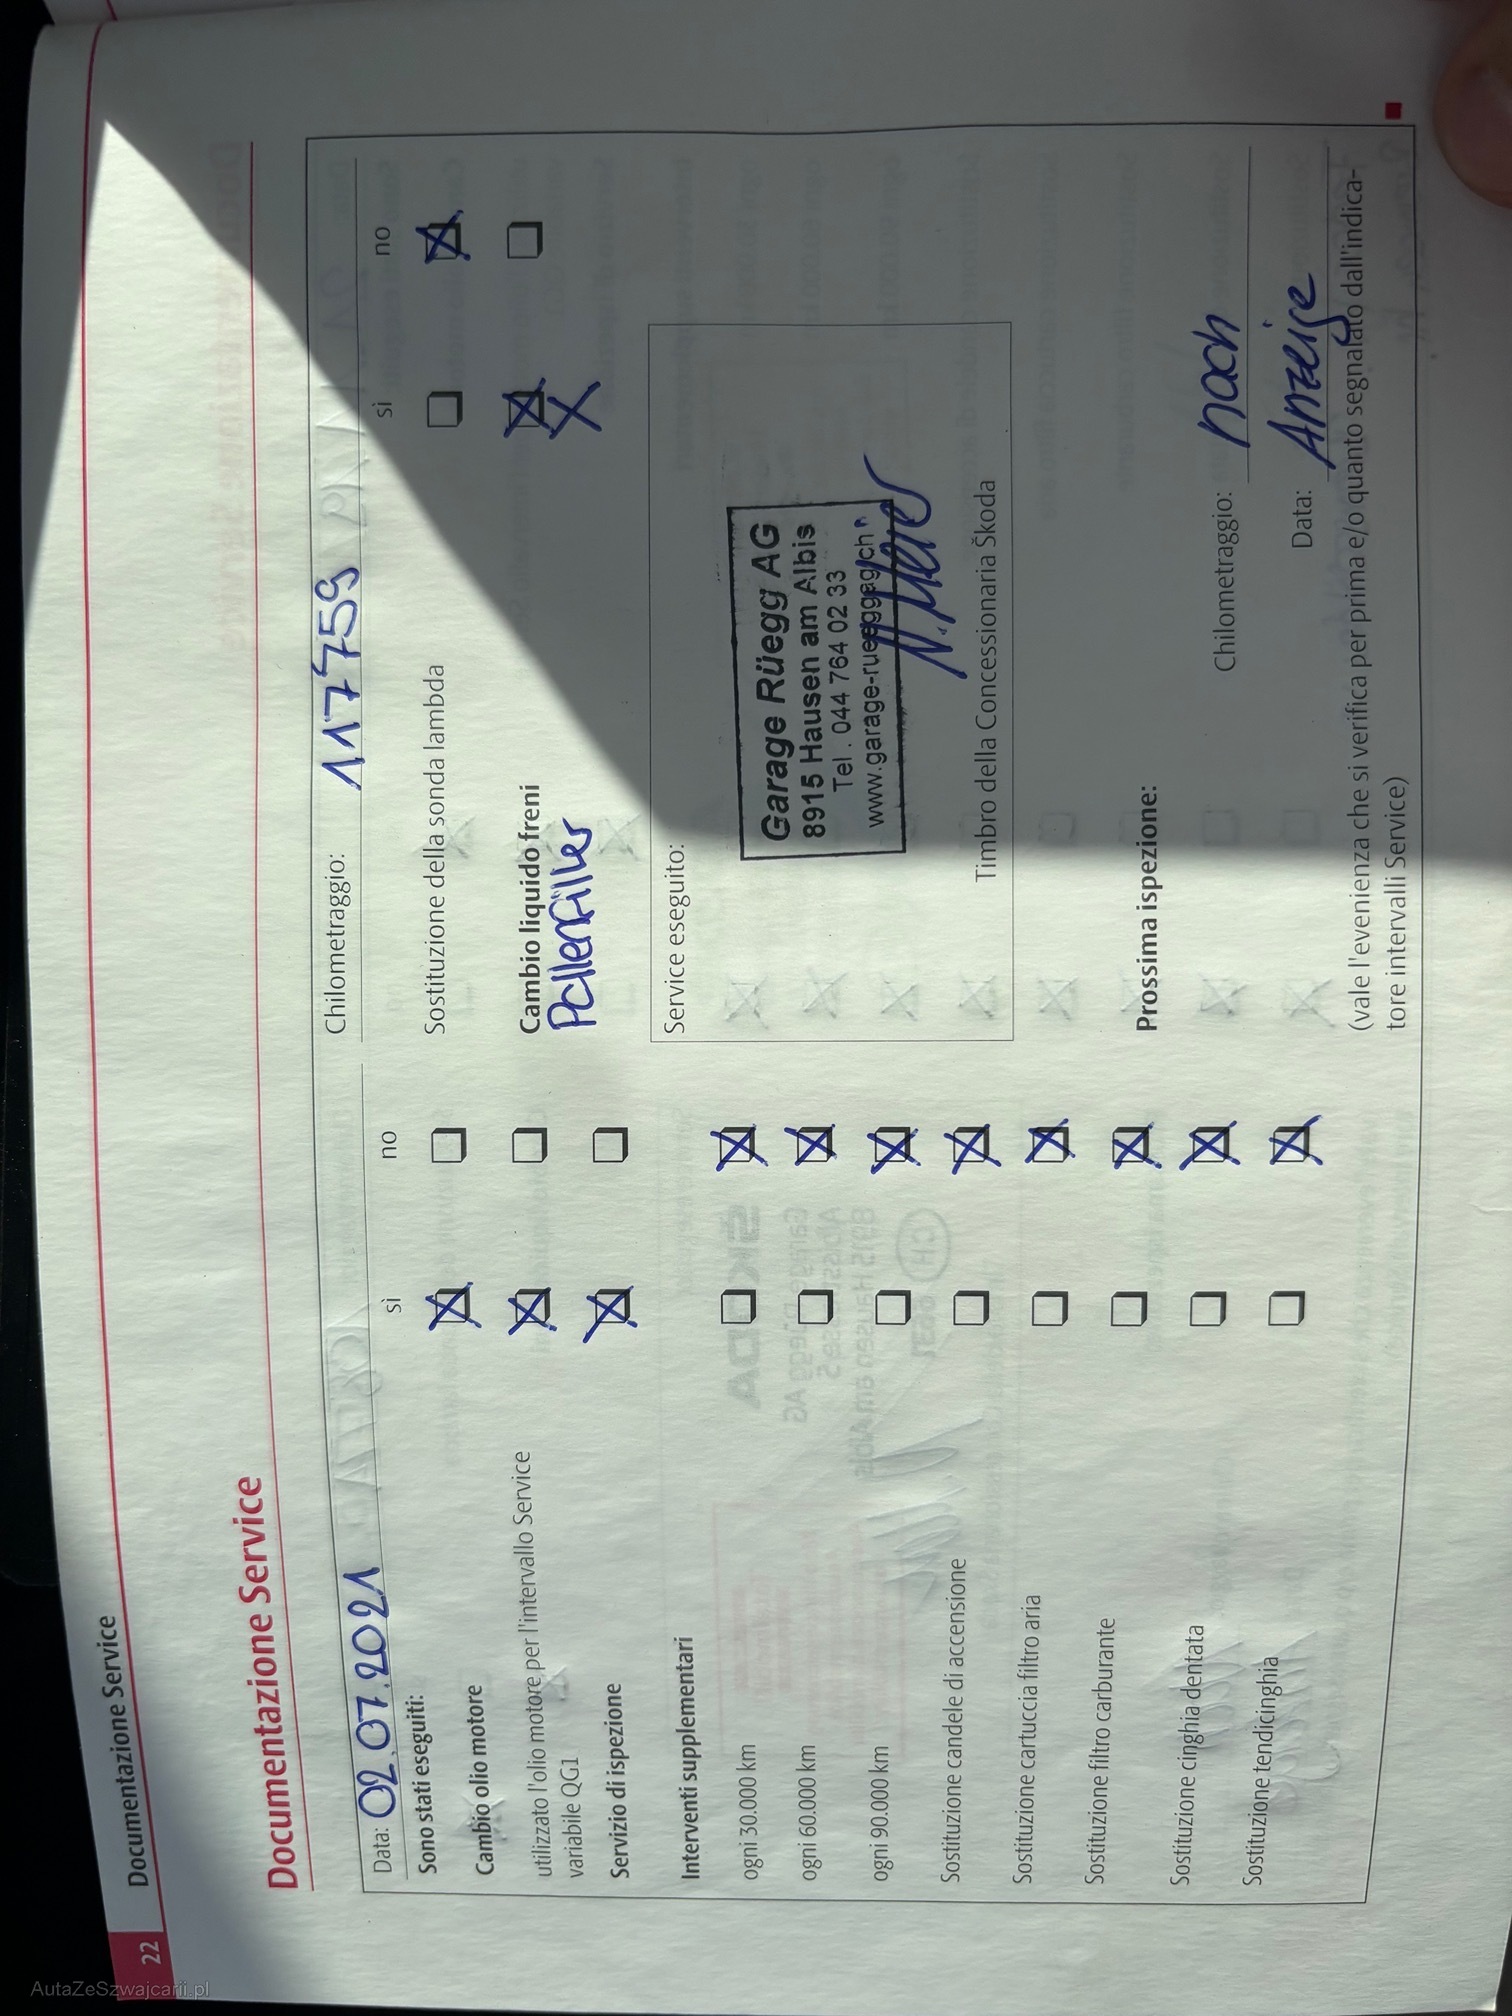 22 Documentazione Service
Documentazione Service
Data: 02.07.2021
Chilometraggio: 117759
Sono stati eseguiti:
sì no
Cambio olio motore
utilizzato l'olio motore per l'intervallo Service
variabile QG1
Servizio di ispezione
Interventi supplementari
ogni 30.000 km
ogni 60.000 km
ogni 90.000 km
Sostituzione candele di accensione
Sostituzione cartuccia filtro aria
Sostituzione filtro carburante
Sostituzione cinghia dentata
Sostituzione tendicinghia
sì no
Sostituzione della sonda lambda
Cambio liquido freni
Pollenfilter
Service eseguito:
Garage Rüegg AG
8915 Hausen am Albis
Tel. 044 764 02 33
www.garage-rueggag.ch
Timbro della Concessionaria Škoda
Prossima ispezione:
Chilometraggio: nach
Data: Anzeige
(vale l'evenienza che si verifica per prima e/o quanto segnalato dall'indica-
tore intervalli Service)
AutaZeSzwajcarii.pl